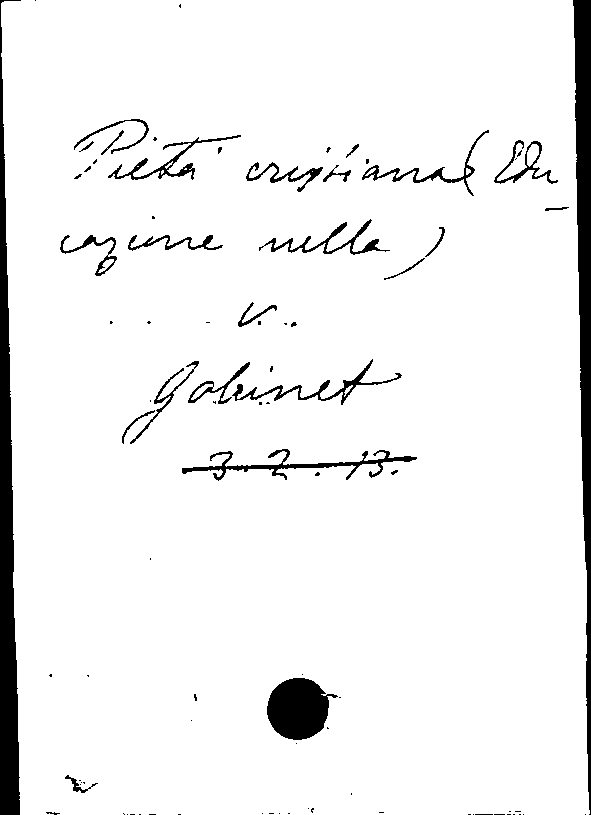 Pietà cristiana (Edu
cazione nella)
v.
Gobinet
3. 2. 13.